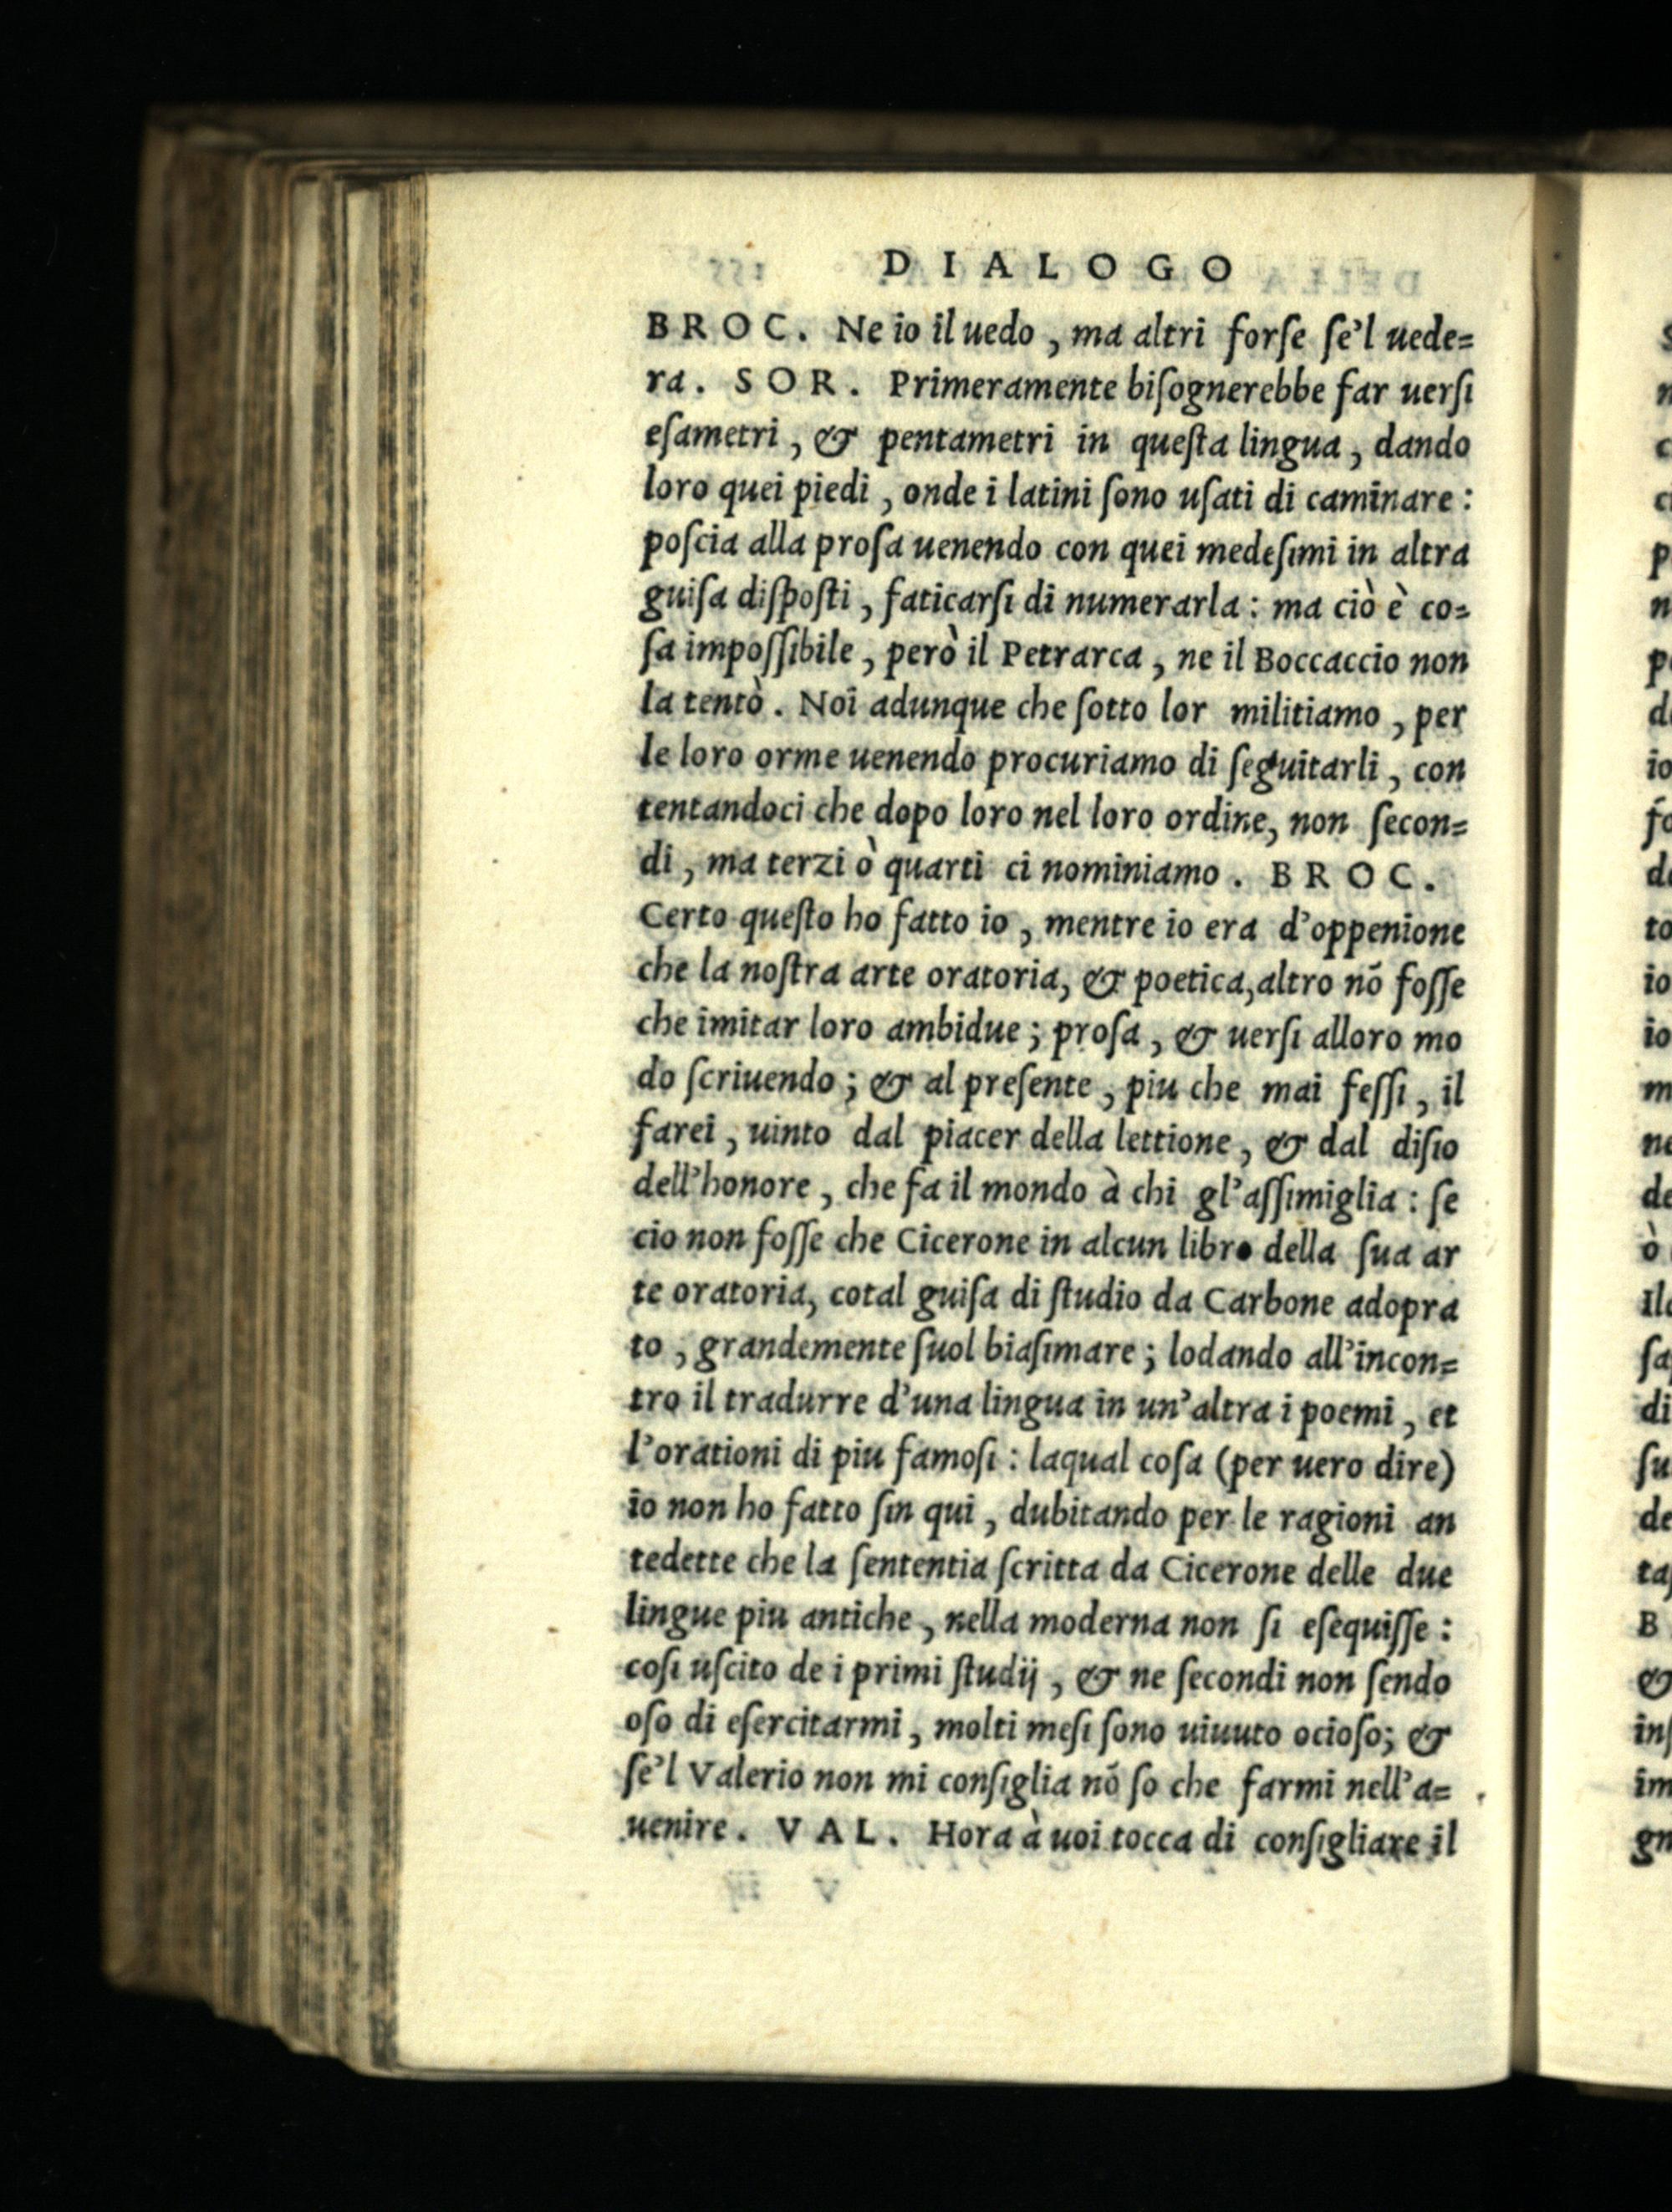 DIALOGO
BROC. Ne io il uedo, ma altri forſe ſe'l uede=
ra. SOR. Primeramente biſognerebbe far uerſi
eſametri, & pentametri in queſta lingua, dando
loro quei piedi, onde i latini ſono uſati di caminare:
poſcia alla proſa uenendo con quei medeſimi in altra
guiſa diſpoſti, faticarſi di numerarla: ma ciò è co=
ſa impoſſibile, però il Petrarca, ne il Boccaccio non
la tentò. Noi adunque che ſotto lor militiamo, per
le loro orme uenendo procuriamo di ſeguitarli, con
tentandoci che dopo loro nel loro ordine, non ſecon=
di, ma terzi ò quarti ci nominiamo. BROC.
Certo queſto ho fatto io, mentre io era d'oppenione
che la noſtra arte oratoria, & poetica, altro nõ foſſe
che imitar loro ambidue; proſa, & uerſi alloro mo
do ſcriuendo; & al preſente, piu che mai feſſi, il
farei, uinto dal piacer della lettione, & dal diſio
dell'honore, che fa il mondo à chi gl'aſſimiglia: ſe
cio non foſſe che Cicerone in alcun libro della ſua ar
te oratoria, cotal guiſa di ſtudio da Carbone adopra
to, grandemente ſuol biaſimare; lodando all'incon=
tro il tradurre d'una lingua in un'altra i poemi, et
l'orationi di piu famoſi: laqual coſa (per uero dire)
io non ho fatto ſin qui, dubitando per le ragioni an
tedette che la ſententia ſcritta da Cicerone delle due
lingue piu antiche, nella moderna non ſi eſequiſſe:
coſi uſcito de i primi ſtudij, & ne ſecondi non ſendo
oſo di eſercitarmi, molti meſi ſono uiuuto ocioſo; &
ſe'l Valerio non mi conſiglia nõ ſo che farmi nell'a=
uenire. VAL. Hora à uoi tocca di conſigliare il